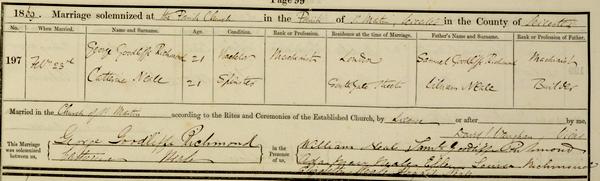 Page 99
18 Marriage solemnized at the Parish Church in the Parish of St Martin, Leicester in the County of Leicester
No. When Married. Name and Surname. Age. Condition. Rank or Profession. Residence at the time of Marriage. Father's Name and Surname. Rank or Profession of Father.
197 23d George Goodliffe Richmond 21 Bachelor Machinist London Samuel Goodliffe Richmond Machinist
Catherine Neale 21 Spinster Southgate Street William Neale Builder
Married in the Church of St Martin according to the Rites and Ceremonies of the Established Church, by Licence or after by me,
David J Vaughan Vicar
This Marriage was solemnized between us, George Goodliffe Richmond
Catherine Neale
in the Presence of us, William Neale Saml Goodliffe Richmond
Neale Ellen Louisa Richmond
Neale